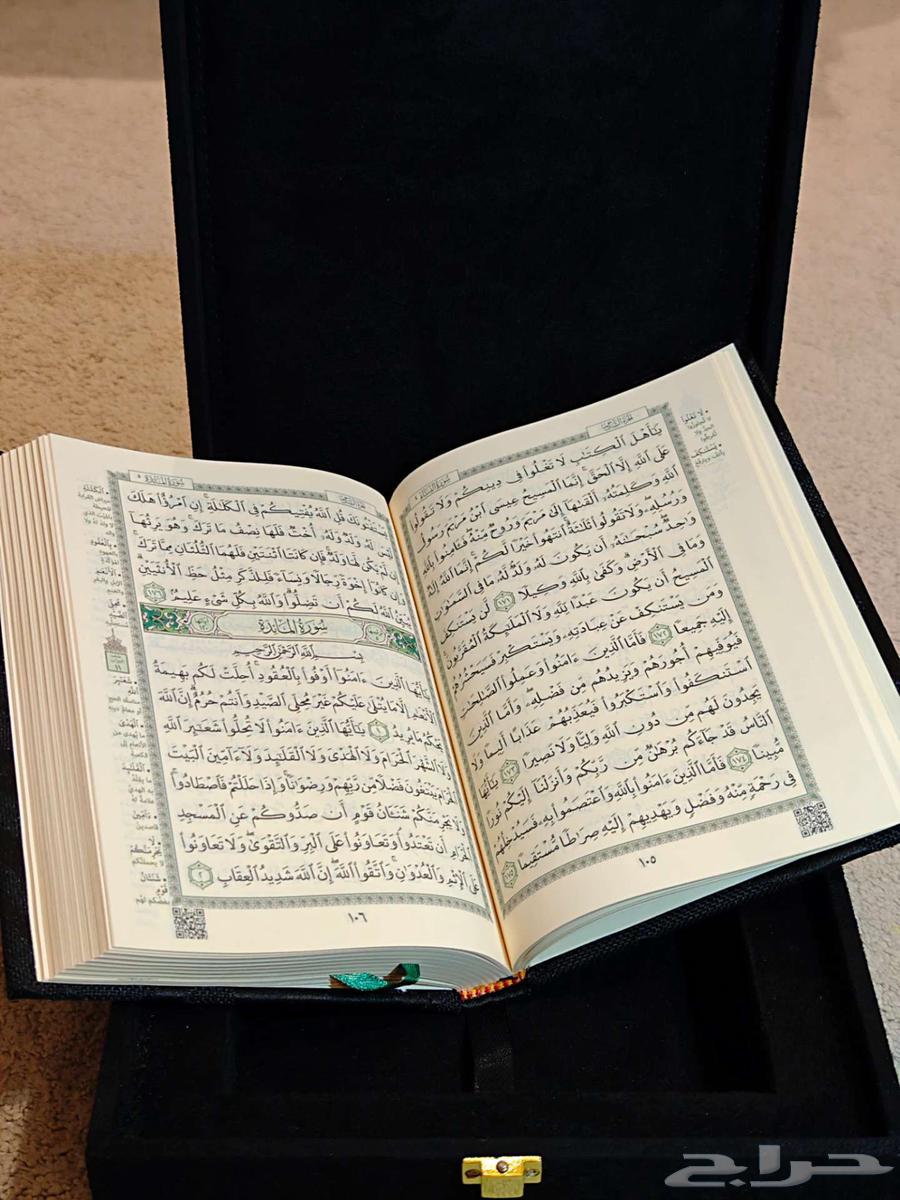 الجزء السادس
سورة النساء ٤
يَٰٓأَهْلَ ٱلْكِتَٰبِ لَا تَغْلُوا۟ فِى دِينِكُمْ وَلَا تَقُولُوا۟
عَلَى ٱللَّهِ إِلَّا ٱلْحَقَّ إِنَّمَا ٱلْمَسِيحُ عِيسَى ٱبْنُ مَرْيَمَ رَسُولُ
ٱللَّهِ وَكَلِمَتُهُۥٓ أَلْقَىٰهَآ إِلَىٰ مَرْيَمَ وَرُوحٌ مِّنْهُ فَـَٔامِنُوا۟ بِٱللَّهِ
وَرُسُلِهِۦ وَلَا تَقُولُوا۟ ثَلَٰثَةٌ ٱنتَهُوا۟ خَيْرًا لَّكُمْ إِنَّمَا ٱللَّهُ إِلَٰهٌ
وَٰحِدٌ سُبْحَٰنَهُۥٓ أَن يَكُونَ لَهُۥ وَلَدٌ لَّهُۥ مَا فِى ٱلسَّمَٰوَٰتِ
وَمَا فِى ٱلْأَرْضِ وَكَفَىٰ بِٱللَّهِ وَكِيلًا ١٧١ لَّن يَسْتَنكِفَ
ٱلْمَسِيحُ أَن يَكُونَ عَبْدًا لِّلَّهِ وَلَا ٱلْمَلَٰٓئِكَةُ ٱلْمُقَرَّبُونَ
وَمَن يَسْتَنكِفْ عَنْ عِبَادَتِهِۦ وَيَسْتَكْبِرْ فَسَيَحْشُرُهُمْ
إِلَيْهِ جَمِيعًا ١٧٢ فَأَمَّا ٱلَّذِينَ ءَامَنُوا۟ وَعَمِلُوا۟ ٱلصَّٰلِحَٰتِ
فَيُوَفِّيهِمْ أُجُورَهُمْ وَيَزِيدُهُم مِّن فَضْلِهِۦ وَأَمَّا ٱلَّذِينَ
ٱسْتَنكَفُوا۟ وَٱسْتَكْبَرُوا۟ فَيُعَذِّبُهُمْ عَذَابًا أَلِيمًا وَلَا
يَجِدُونَ لَهُم مِّن دُونِ ٱللَّهِ وَلِيًّا وَلَا نَصِيرًا ١٧٣ يَٰٓأَيُّهَا
ٱلنَّاسُ قَدْ جَآءَكُم بُرْهَٰنٌ مِّن رَّبِّكُمْ وَأَنزَلْنَآ إِلَيْكُمْ نُورًا
مُّبِينًا ١٧٤ فَأَمَّا ٱلَّذِينَ ءَامَنُوا۟ بِٱللَّهِ وَٱعْتَصَمُوا۟ بِهِۦ فَسَيُدْخِلُهُمْ
فِى رَحْمَةٍ مِّنْهُ وَفَضْلٍ وَيَهْدِيهِمْ إِلَيْهِ صِرَٰطًا مُّسْتَقِيمًا ١٧٥
١٠٥
الجزء السادس
سورة المائدة ٥
يَسْتَفْتُونَكَ قُلِ ٱللَّهُ يُفْتِيكُمْ فِى ٱلْكَلَٰلَةِ إِنِ ٱمْرُؤٌا۟ هَلَكَ
لَيْسَ لَهُۥ وَلَدٌ وَلَهُۥٓ أُخْتٌ فَلَهَا نِصْفُ مَا تَرَكَ وَهُوَ يَرِثُهَآ
إِن لَّمْ يَكُن لَّهَا وَلَدٌ فَإِن كَانَتَا ٱثْنَتَيْنِ فَلَهُمَا ٱلثُّلُثَانِ مِمَّا تَرَكَ
وَإِن كَانُوٓا۟ إِخْوَةً رِّجَالًا وَنِسَآءً فَلِلذَّكَرِ مِثْلُ حَظِّ ٱلْأُنثَيَيْنِ
يُبَيِّنُ ٱللَّهُ لَكُمْ أَن تَضِلُّوا۟ وَٱللَّهُ بِكُلِّ شَىْءٍ عَلِيمٌۢ ١٧٦
سُورَةُ المَائِدَةِ
بِسْمِ ٱللَّهِ ٱلرَّحْمَٰنِ ٱلرَّحِيمِ
يَٰٓأَيُّهَا ٱلَّذِينَ ءَامَنُوٓا۟ أَوْفُوا۟ بِٱلْعُقُودِ أُحِلَّتْ لَكُم بَهِيمَةُ
ٱلْأَنْعَٰمِ إِلَّا مَا يُتْلَىٰ عَلَيْكُمْ غَيْرَ مُحِلِّى ٱلصَّيْدِ وَأَنتُمْ حُرُمٌ إِنَّ ٱللَّهَ
يَحْكُمُ مَا يُرِيدُ ١ يَٰٓأَيُّهَا ٱلَّذِينَ ءَامَنُوا۟ لَا تُحِلُّوا۟ شَعَٰٓئِرَ ٱللَّهِ
وَلَا ٱلشَّهْرَ ٱلْحَرَامَ وَلَا ٱلْهَدْىَ وَلَا ٱلْقَلَٰٓئِدَ وَلَآ ءَآمِّينَ ٱلْبَيْتَ
ٱلْحَرَامَ يَبْتَغُونَ فَضْلًا مِّن رَّبِّهِمْ وَرِضْوَٰنًا وَإِذَا حَلَلْتُمْ فَٱصْطَادُوا۟
وَلَا يَجْرِمَنَّكُمْ شَنَـَٔانُ قَوْمٍ أَن صَدُّوكُمْ عَنِ ٱلْمَسْجِدِ
ٱلْحَرَامِ أَن تَعْتَدُوا۟ وَتَعَاوَنُوا۟ عَلَى ٱلْبِرِّ وَٱلتَّقْوَىٰ وَلَا تَعَاوَنُوا۟
عَلَى ٱلْإِثْمِ وَٱلْعُدْوَٰنِ وَٱتَّقُوا۟ ٱللَّهَ إِنَّ ٱللَّهَ شَدِيدُ ٱلْعِقَابِ ٢
١٠٦
حراج